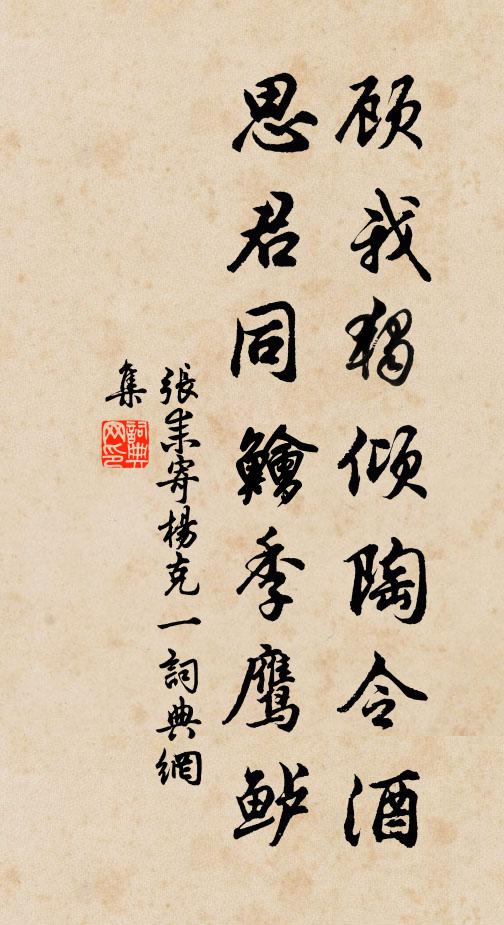 顾我獨倾陶令酒
思君同鱠季鹰鲈
張耒寄楊克一詞典網
集
詞典
网印